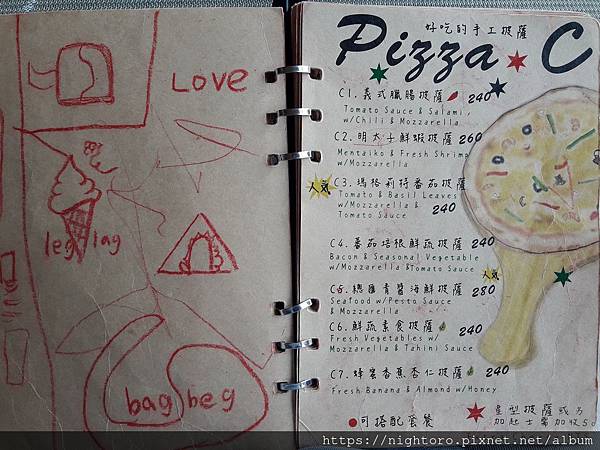 LOVE
leg lag
bag beg
好吃的手工披薩
Pizza C
C1. 義式臘腸披薩 240
Tomato Sauce & Salami,
w/Chili & Mozzarella
C2. 明太子鮮蝦披薩 260
Mentaiko & Fresh Shrimp
w/Mozzarella
人氣 C3. 瑪格莉特番茄披薩
Tomato & Basil Leaves
w/Mozzarella &
Tomato Sauce 240
C4. 番茄培根鮮蔬披薩 240
Bacon & Seasonal Vegetable
w/Mozzarella & Tomato Sauce
人氣
C5. 總匯青醬海鮮披薩 280
Seafood w/Pesto Sauce
& Mozzarella
C6. 鮮蔬素食披薩 240
Fresh Vegetables w/
Mozzarella & Tahini Sauce
C7. 蜂蜜香蕉杏仁披薩 240
Fresh Banana & Almond w/Honey
可搭配套餐
星型披薩或另
加起士需加收50
https://nightoro.pixnet.net/album